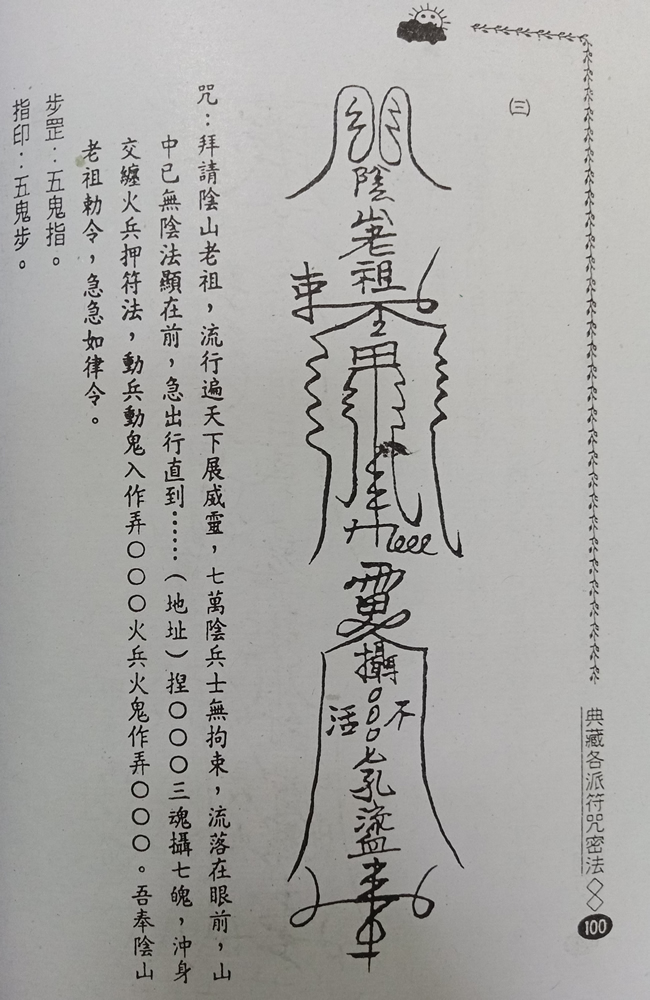 典藏各派符咒密法
100
(三)
陰山老祖
束
攝
不
活
○○○
七孔
咒：拜請陰山老祖，流行遍天下展威靈，七萬陰兵士無拘束，流落在眼前，山
中已無陰法顯在前，急出行直到……（地址）捏○○○三魂攝七魄，沖身
交纏火兵押符法，動兵動鬼入作弄○○○火兵火鬼作弄○○○。吾奉陰山
老祖勅令，急急如律令。
步罡：五鬼指。
指印：五鬼步。